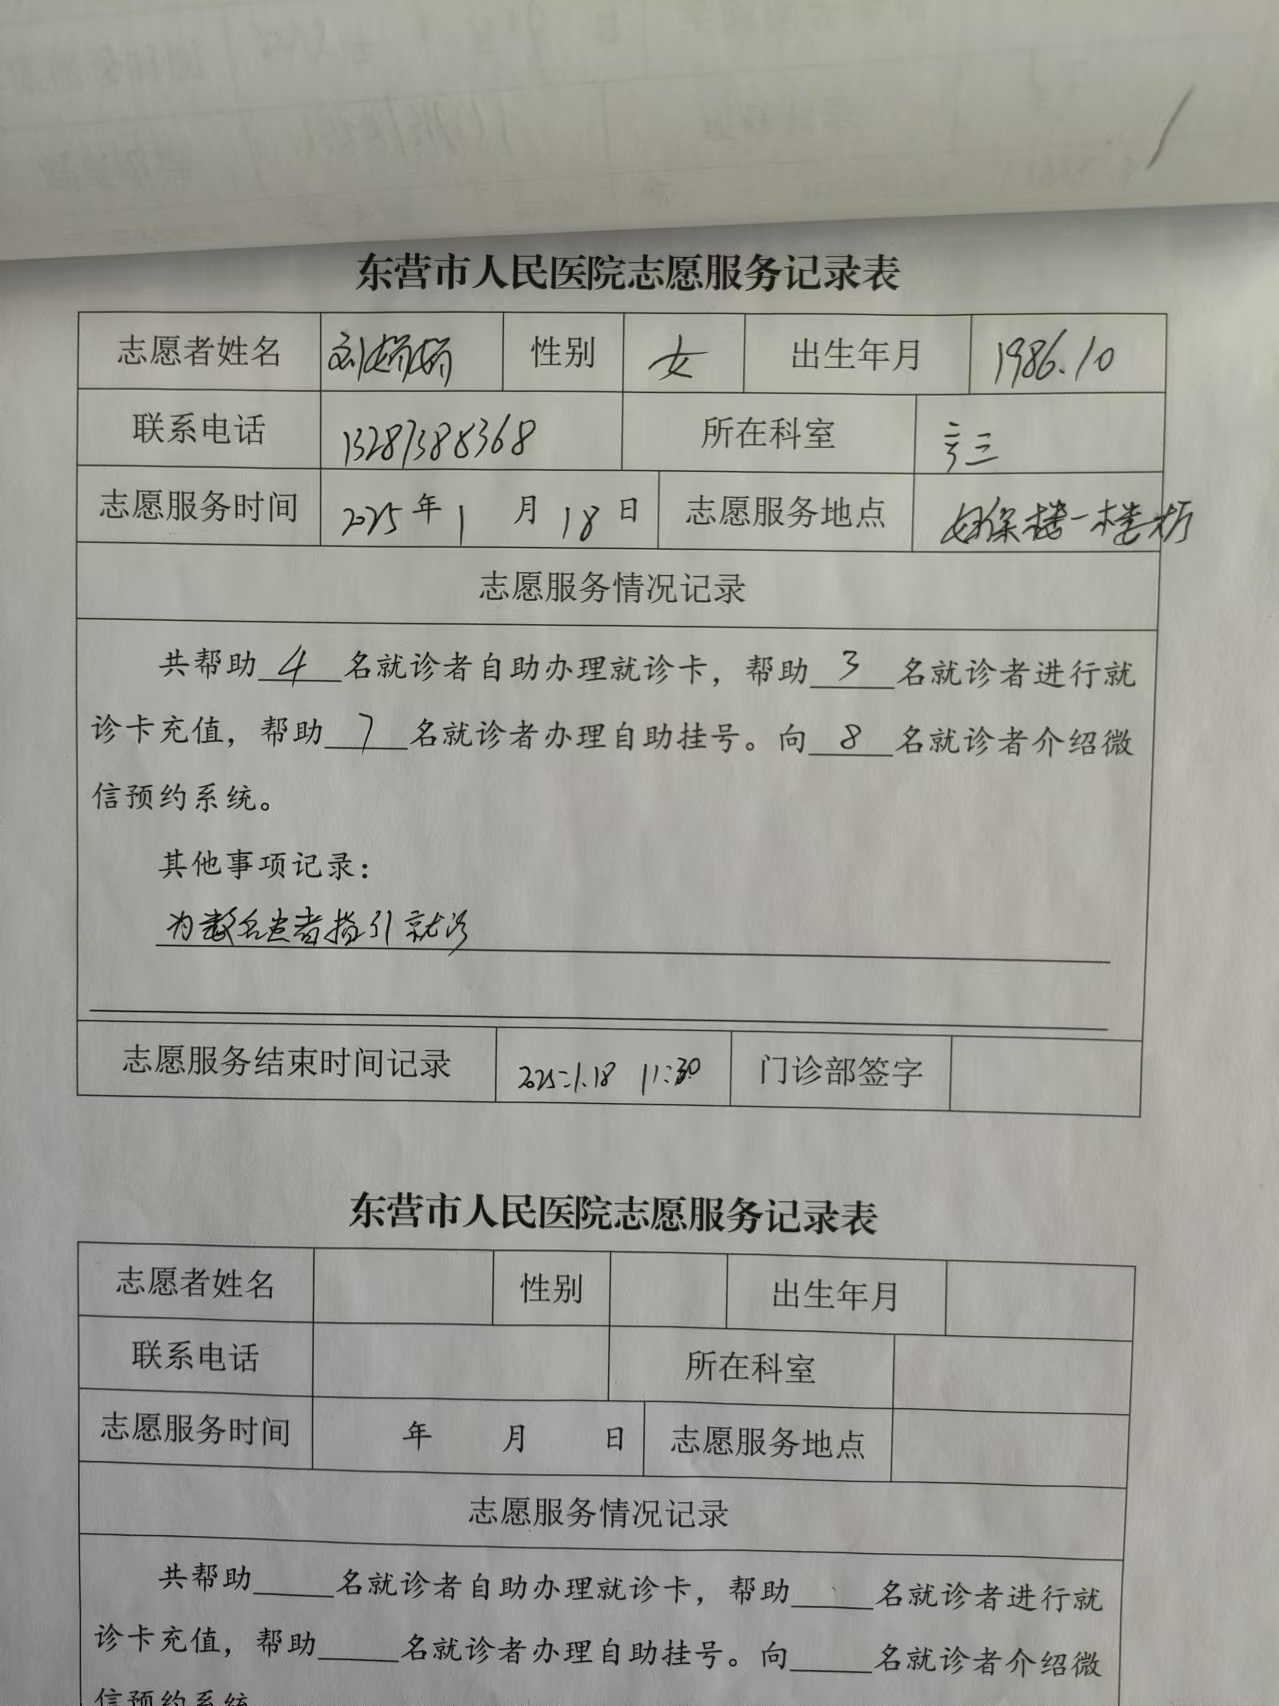 东营市人民医院志愿服务记录表
志愿者姓名 刘娇娇 性别 女 出生年月 1986.10
联系电话 13287388368 所在科室
志愿服务时间 2025年1月18日 志愿服务地点 妇保楼一楼大厅
志愿服务情况记录
共帮助4名就诊者自助办理就诊卡，帮助3名就诊者进行就
诊卡充值，帮助7名就诊者办理自助挂号。向8名就诊者介绍微
信预约系统。
其他事项记录：
为数名患者指引就诊
志愿服务结束时间记录 2025.1.18 11:30 门诊部签字
东营市人民医院志愿服务记录表
志愿者姓名 性别 出生年月
联系电话 所在科室
志愿服务时间 年 月 日 志愿服务地点
志愿服务情况记录
共帮助____名就诊者自助办理就诊卡，帮助____名就诊者进行就
诊卡充值，帮助____名就诊者办理自助挂号。向____名就诊者介绍微
信预约系统